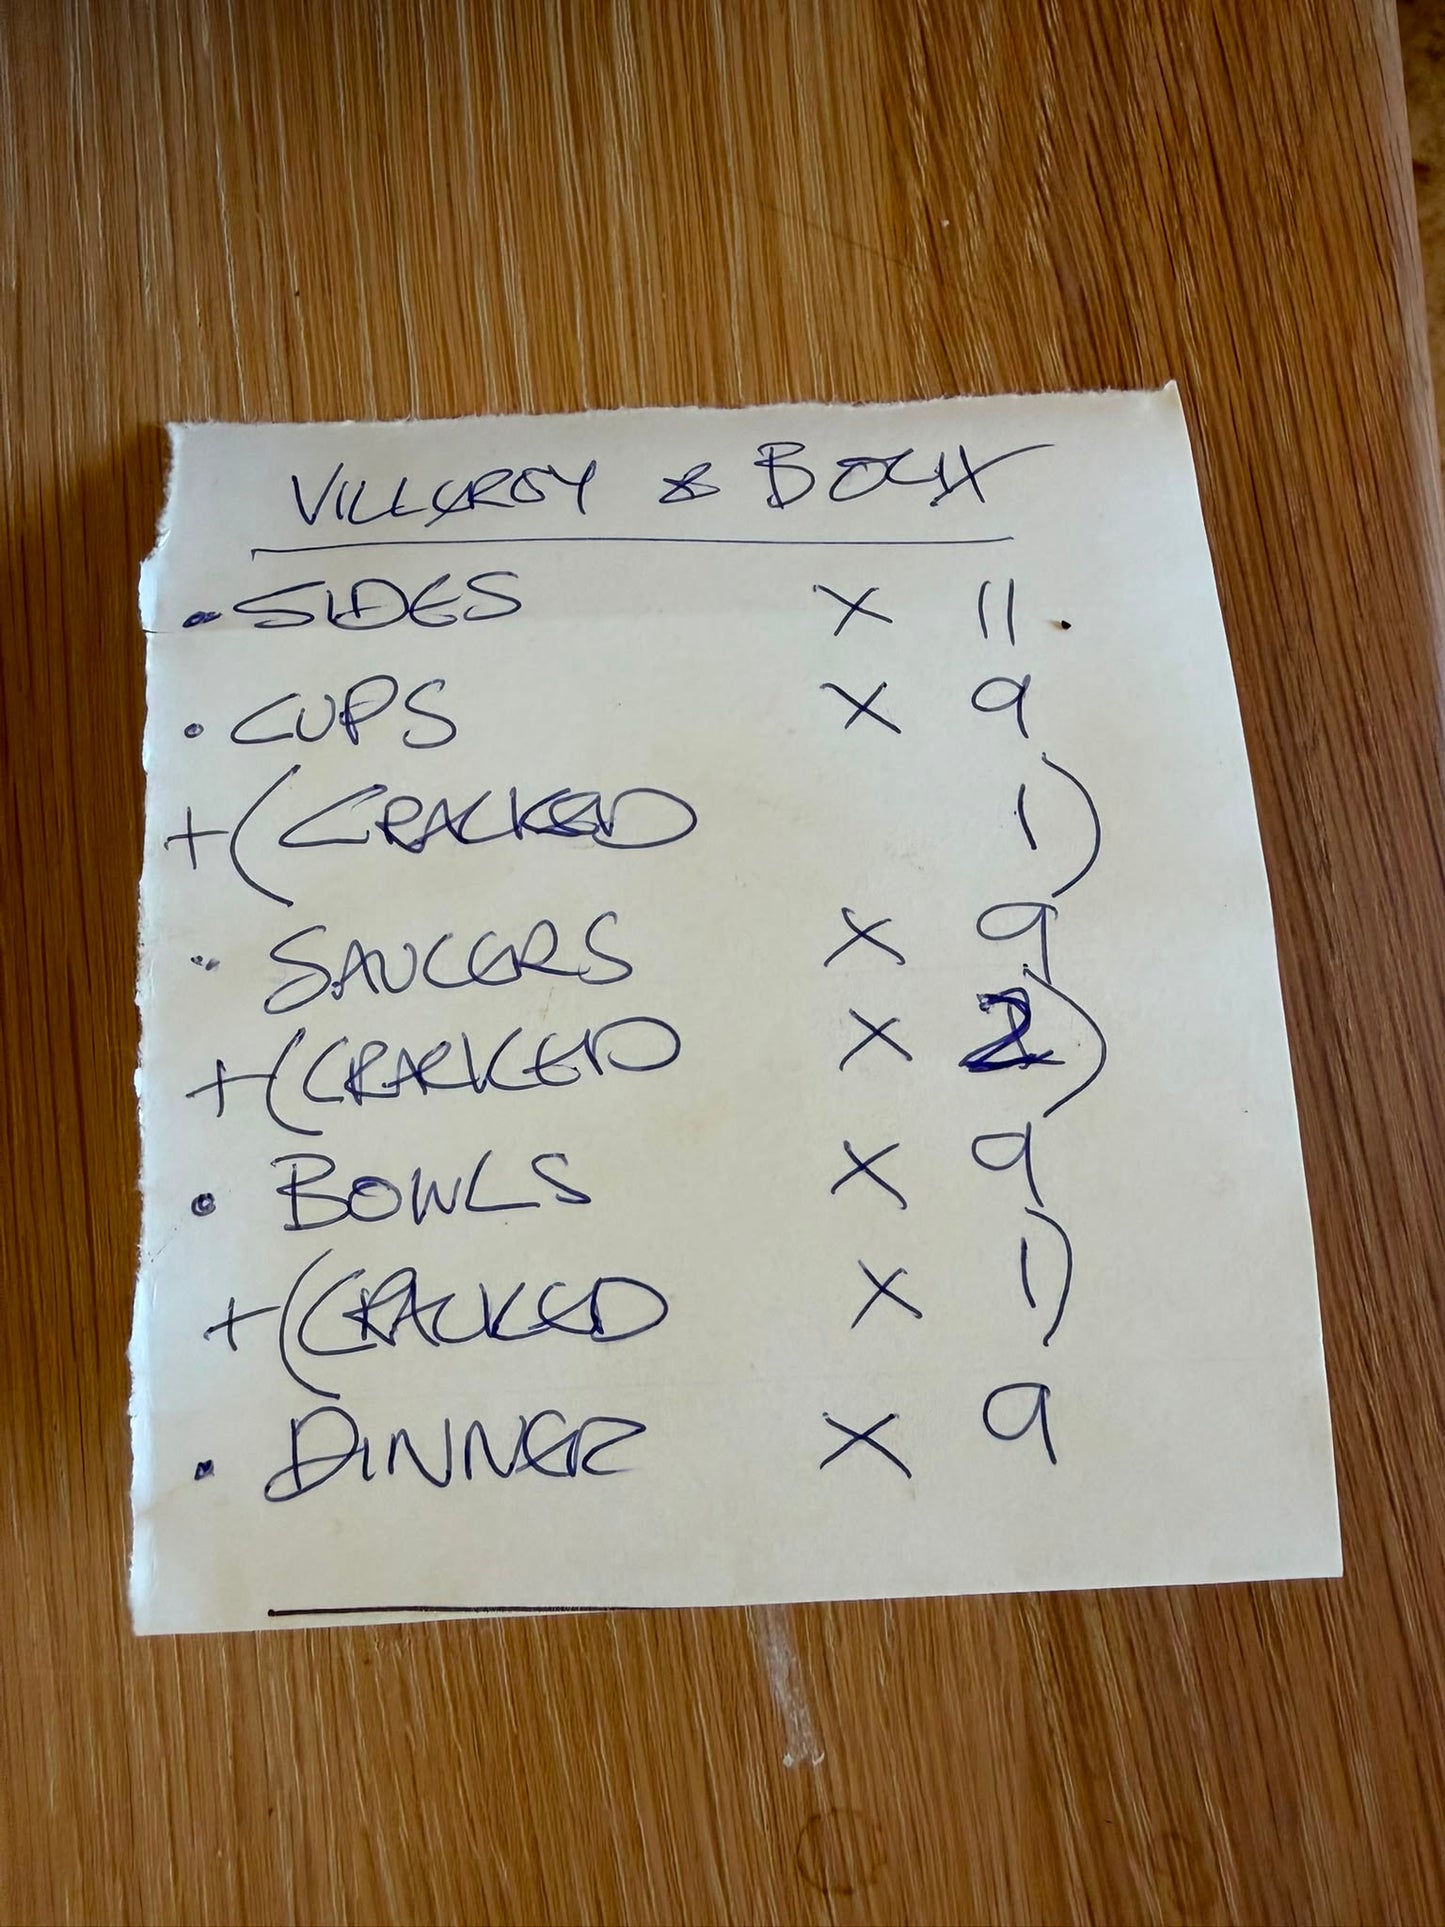 VILLEROY & BOCH
• SIDES X 11.
• CUPS X 9
+ (CRACKED 1)
• SAUCERS X 9
+ (CRACKED X 2)
• BOWLS X 9
+ (CRACKED X 1)
• DINNER X 9